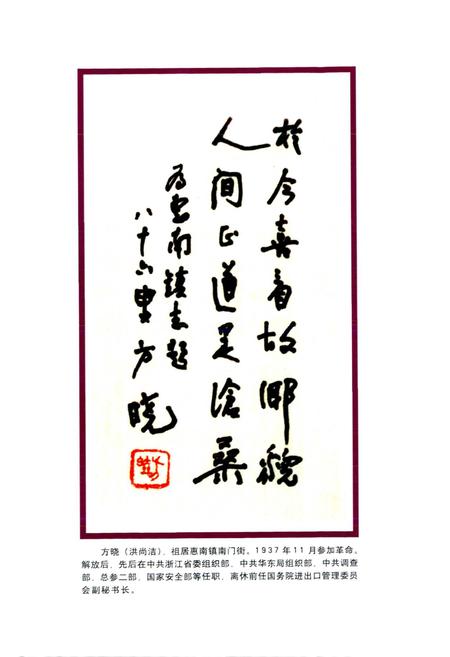 於今喜看故鄉貌
人间正道是滄桑
为惠南镇志题
八十六叟方晓
方晓（洪尚洁），祖居惠南镇南门街。1937年11月参加革命。
解放后，先后在中共浙江省委组织部、中共华东局组织部、中共调查
部、总参二部、国家安全部等任职，离休前任国务院进出口管理委员
会副秘书长。